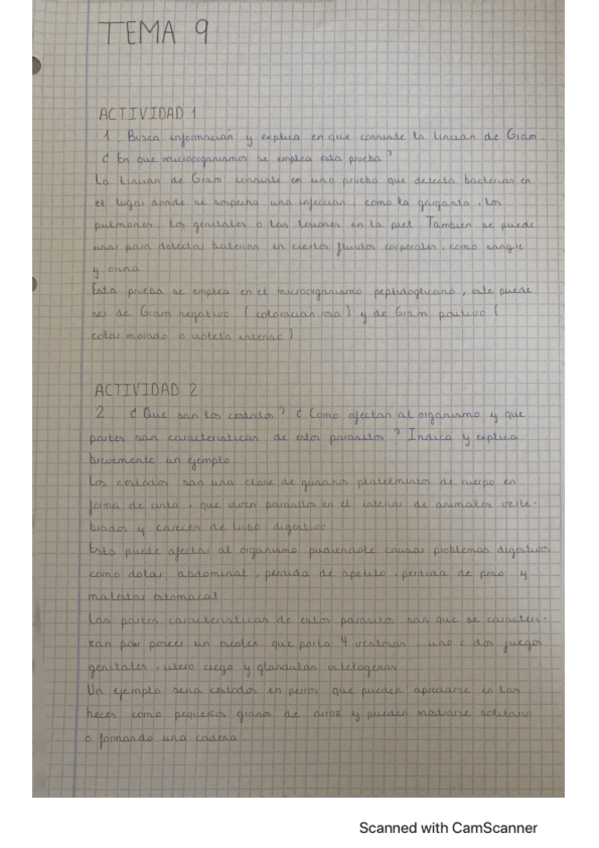 TEMA 9
ACTIVIDAD 1
1 Busca información y explica en que consiste la tinción de Gram.
¿ En que microorganismos se emplea esta prueba ?
La tinción de Gram consiste en una prueba que detecta bacterias en
el lugar donde se sospecha una infección, como la garganta, los
pulmones, los genitales o las lesiones en la piel. Tambien se puede
usar para detectar bacterias en ciertos fluidos corporales, como sangre
y orina
Esta prueba se emplea en el microorganismo peptidoglicano, este puede
ser de Gram negativo ( coloración rosa ) y de Gram positivo (
color morado o violeta intenso )
ACTIVIDAD 2
2 ¿ Que son los cestodos ? ¿ Como afectan al organismo y que
partes son caracteristicas de estos parasitos ? Indica y explica
brevemente un ejemplo
Los cestodos son una clase de gusanos platelmintos de cuerpo en
forma de cinta, que viven parasitos en el interior de animales verte-
brados y carecen de tubo digestivo
Esto puede afectar al organismo pudiendole causar problemas digestivos
como dolor abdominal, perdida de apetito, perdida de peso y
malestar estomacal
Las partes caracteristicas de estos parasitos son que se caracteri-
zan por poseer un escolex que porta 4 ventosas, uno o dos juegos
genitales, utero ciego y glandulas vitelogenas
Un ejemplo seria cestodos en perros que pueden apreciarse en las
heces como pequeños granos de arroz y pueden mostrarse solitario
o formando una cadena.
Scanned with CamScanner